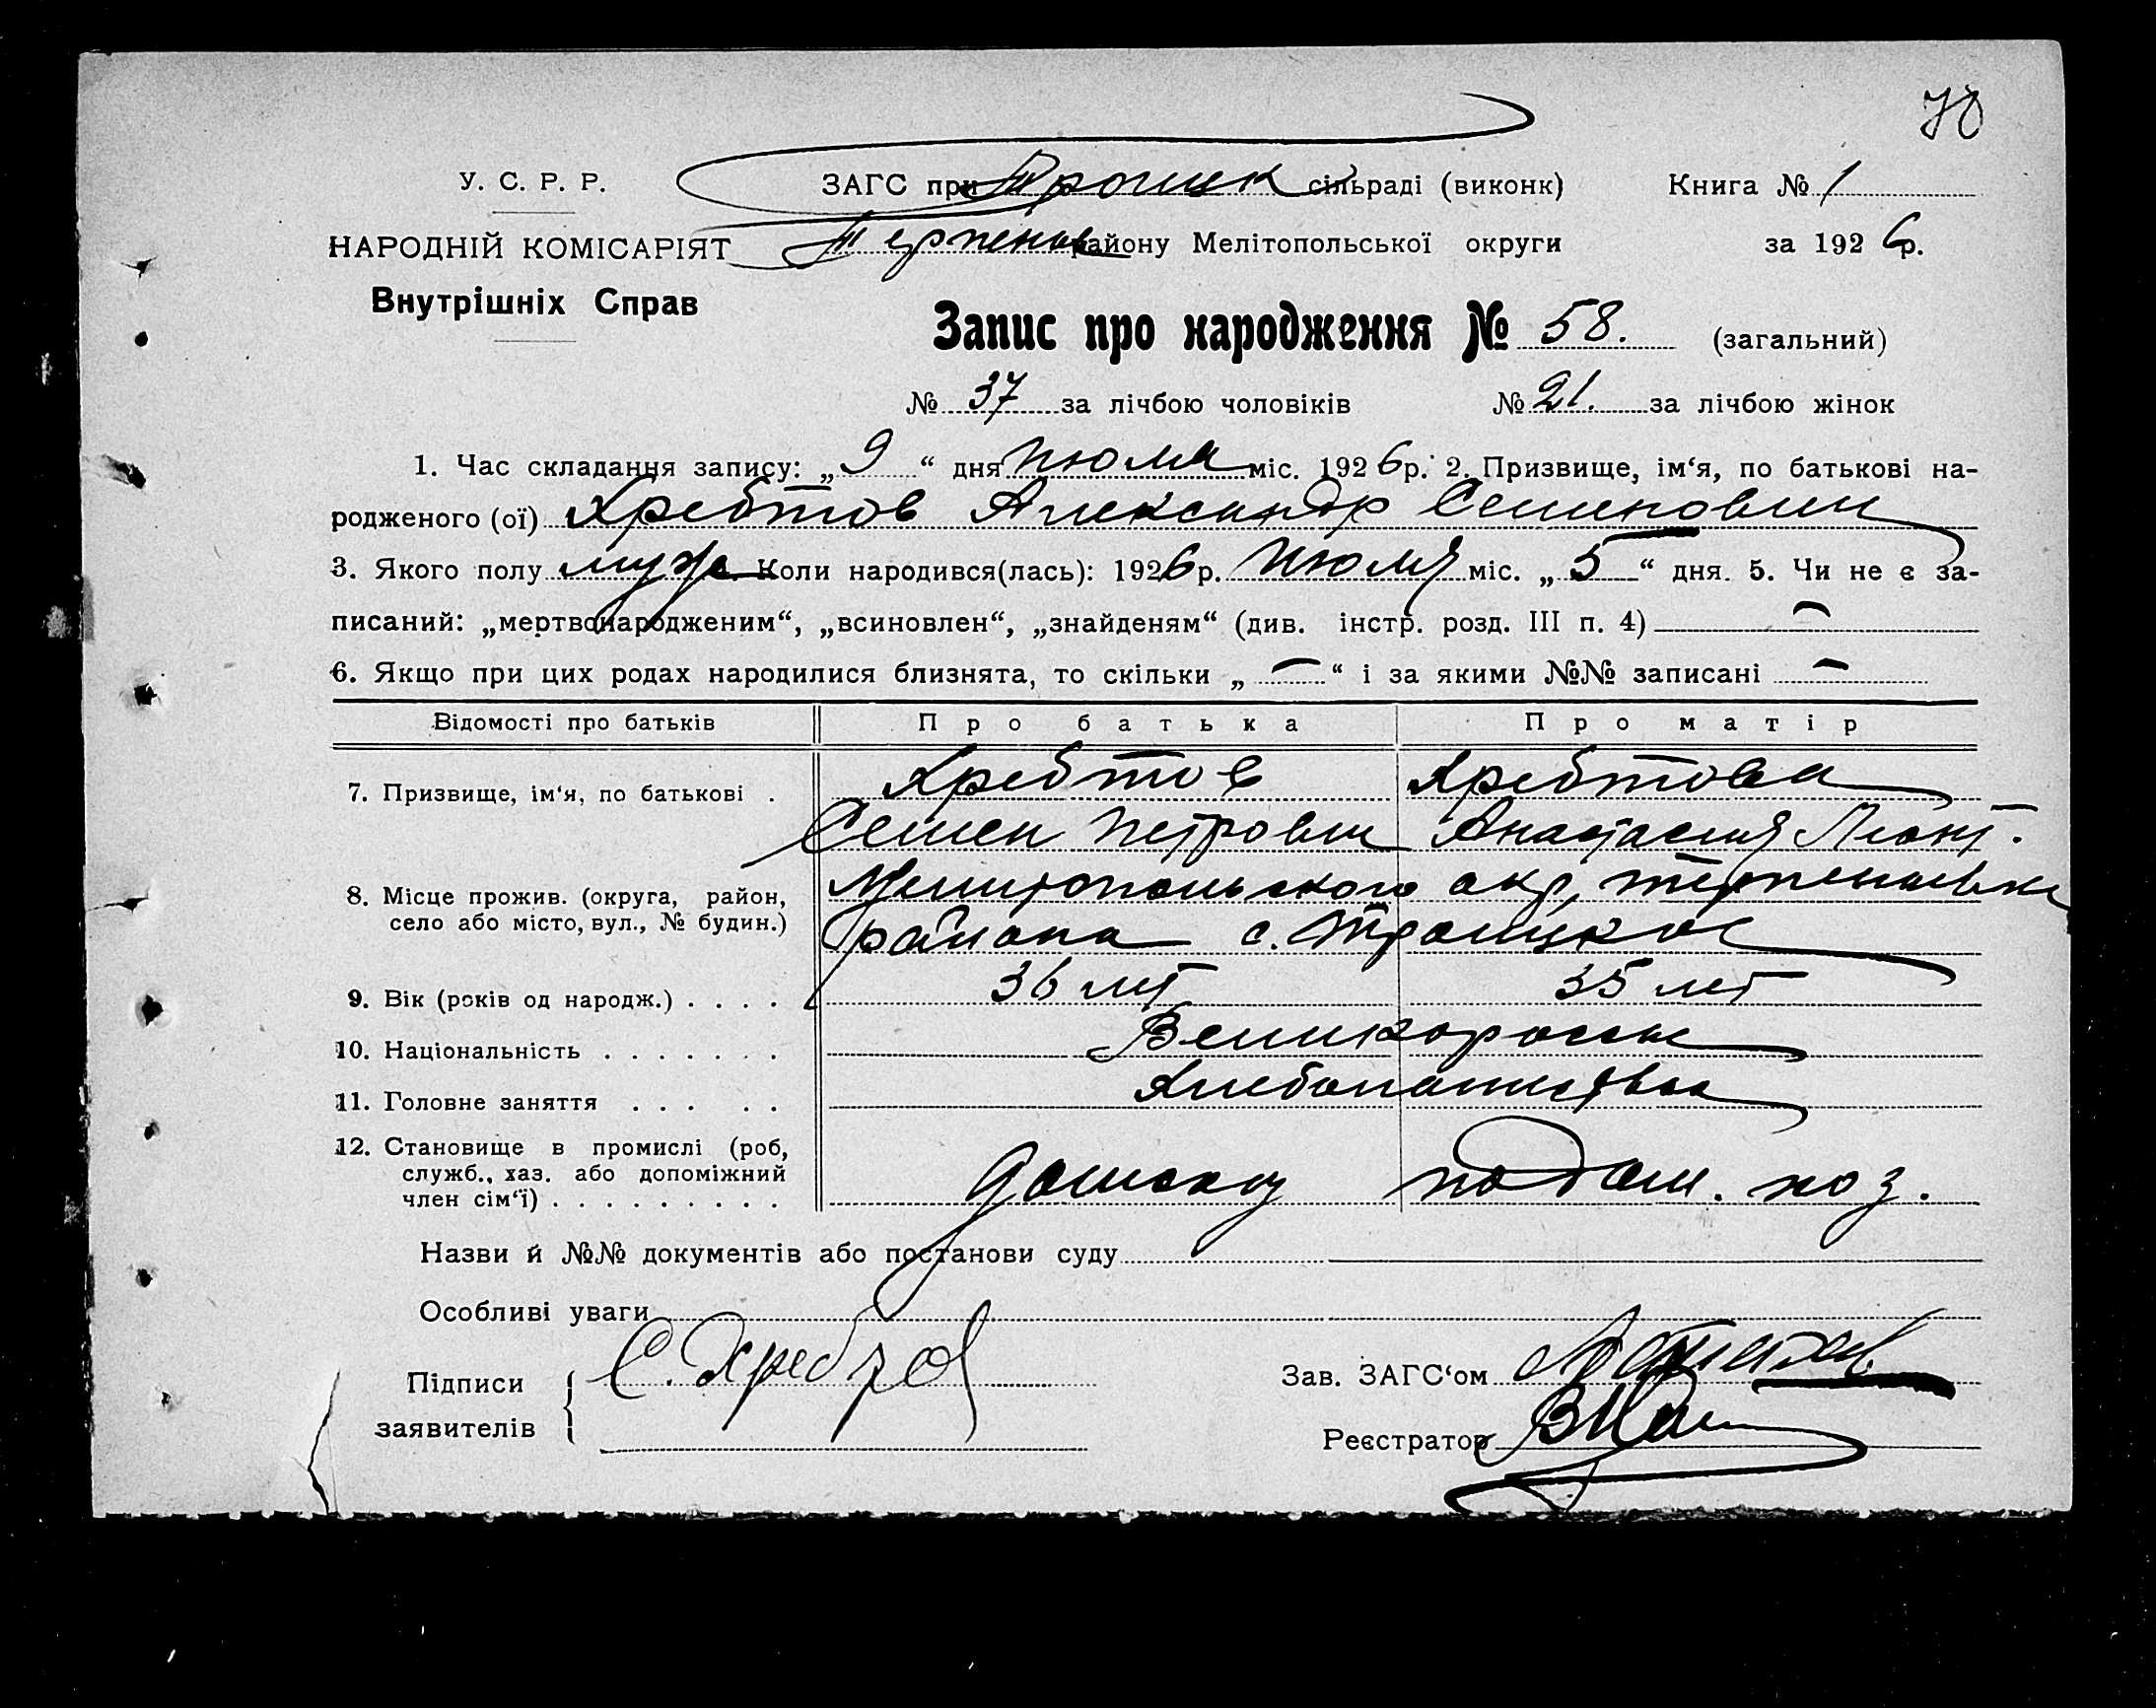 70
У. С. Р. Р.
ЗАГС при Троицк сільраді (виконк)
Книга № 1
НАРОДНІЙ КОМІСАРІЯТ
Терпенов району Мелітопольської округи
за 1926р.
Внутрішніх Справ
Запис про народження № 58. (загальний)
№ 37 за лічбою чоловіків № 21. за лічбою жінок
1. Час складання запису: „9“ дня июля міс. 1926р. 2. Призвище, ім‘я, по батькові на-
родженого (ої) Хребтов Александр Семенович
3. Якого полу муж 4. Коли народився(лась): 1926р. июля міс. „5“ дня. 5. Чи не є за-
писаний: „мертвонародженим“, „всиновлен“, „знайденям“ (див. інстр. розд. III п. 4) —
6. Якщо при цих родах народилися близнята, то скільки „—“ і за якими №№ записані —
Відомості про батьків Про батька Про матір
7. Призвище, ім‘я, по батькові . Хребтов Хребтова
Семен Петрович Анастасия Леонт.
8. Місце прожив. (округа, район, Мелитопольского окр,
село або місто, вул., № будин.) района с. Троицкое
9. Вік (років од народж.) . . . . 36 лет 35 лет
10. Національність . . . . . . . Великороссы
11. Головне заняття . . . . . Хлебопашество
12. Становище в промислі (роб,
служб., хаз. або допоміжний
член сім‘ї) . . . . . . . . . хоз.
Назви й №№ документів або постанови суду
Особливі уваги
Підписи
заявителів
С. Хребтов
Зав. ЗАГС‘ом
Реєстратор